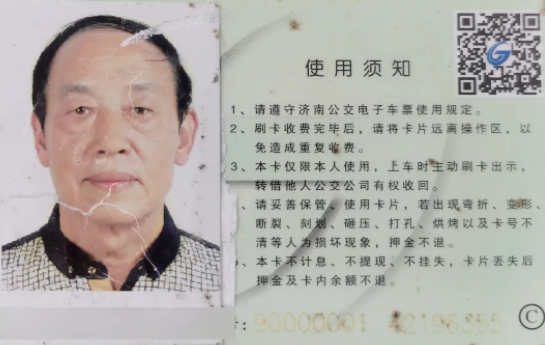 使用须知
1、请遵守济南公交电子车票使用规定。
2、刷卡收费完毕后，请将卡片远离操作区，以
免造成重复收费。
3、本卡仅限本人使用，上车时主动刷卡出示，
转借他人公交公司有权收回。
、请妥善保管、使用卡片，若出现弯折、变形、
断裂、刻划、砸压、打孔、烘烤以及卡号不
清等人为损坏现象，押金不退。
、本卡不计息、不提现、不挂失，卡片丢失后
押金及卡内余额不退。
: 90000001 42196355 Ⓒ